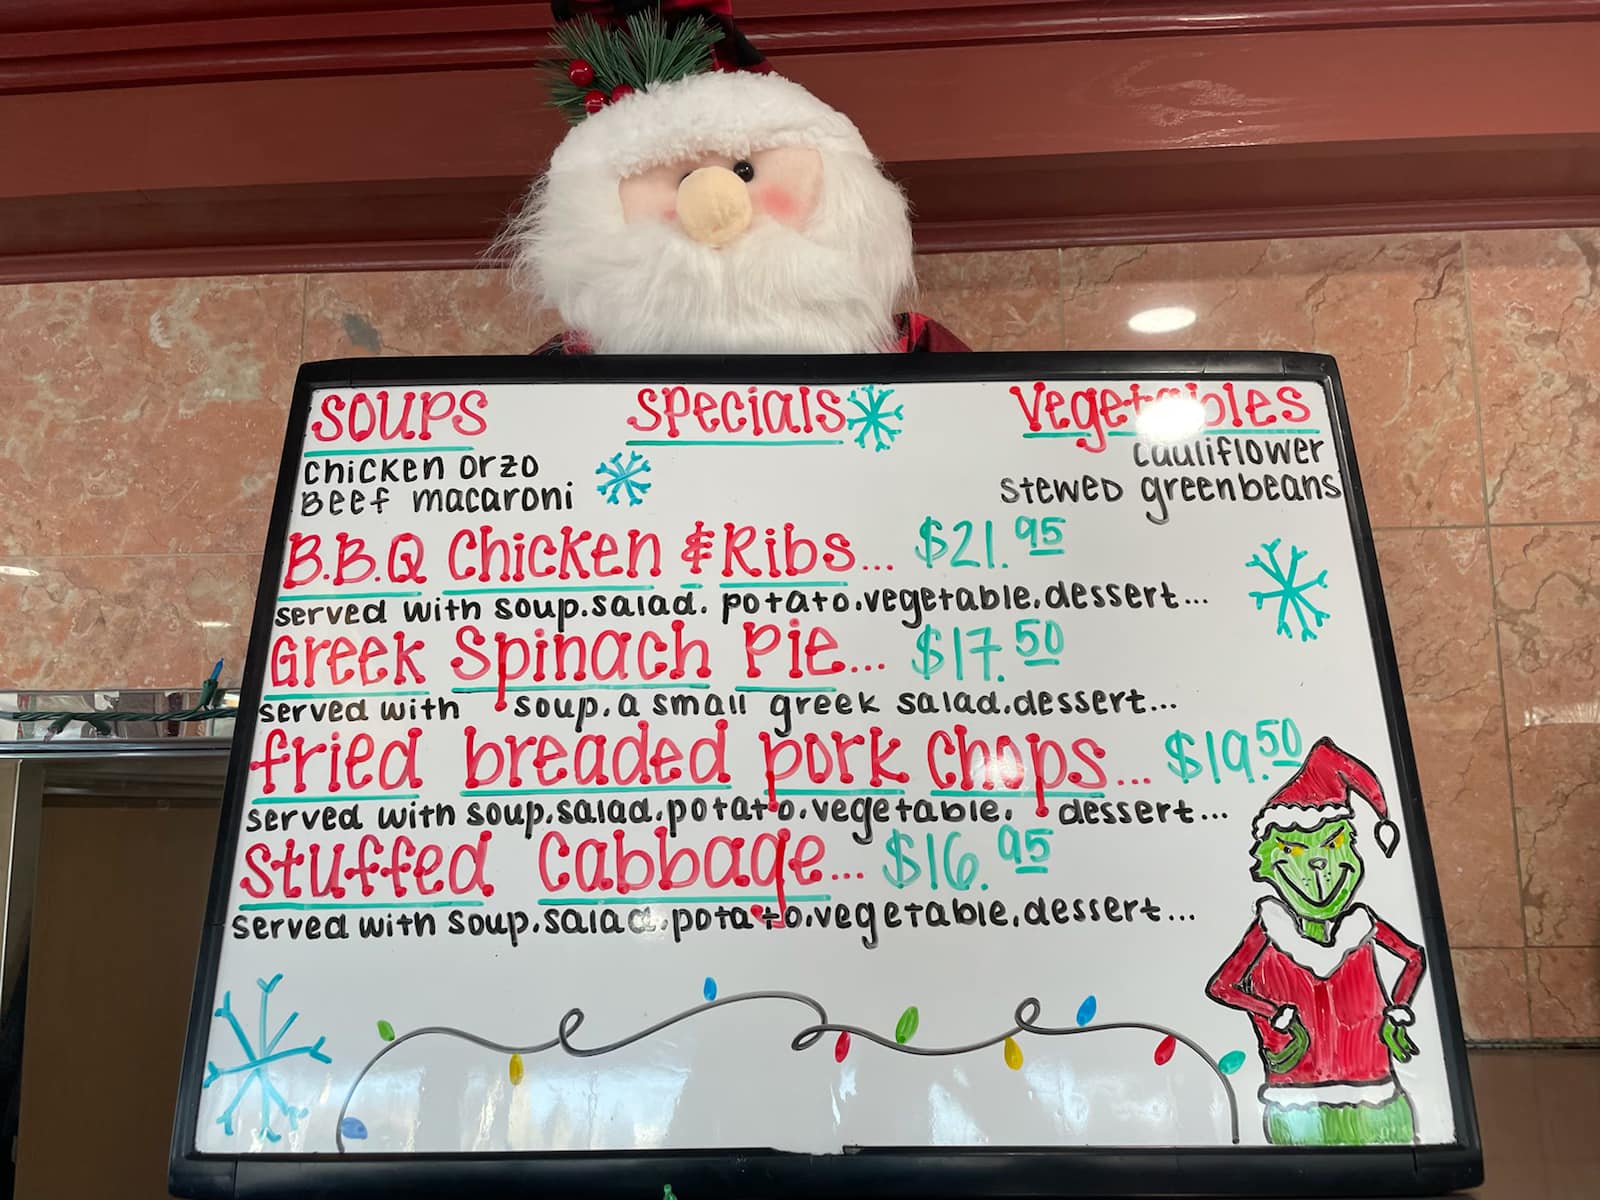 SOUPS
Specials
Vegetables
Chicken orzo
Beef macaroni
cauliflower
stewed greenbeans
B.B.Q Chicken & Ribs... $21.95
served with soup.salad. potato.vegetable.dessert...
Greek Spinach Pie... $17.50
served with soup.a small greek salad.dessert...
fried breaded pork chops... $19.50
served with soup.salad.potato.vegetable. dessert...
Stuffed Cabbage... $16.95
served with soup.salad.potato.vegetable.dessert...